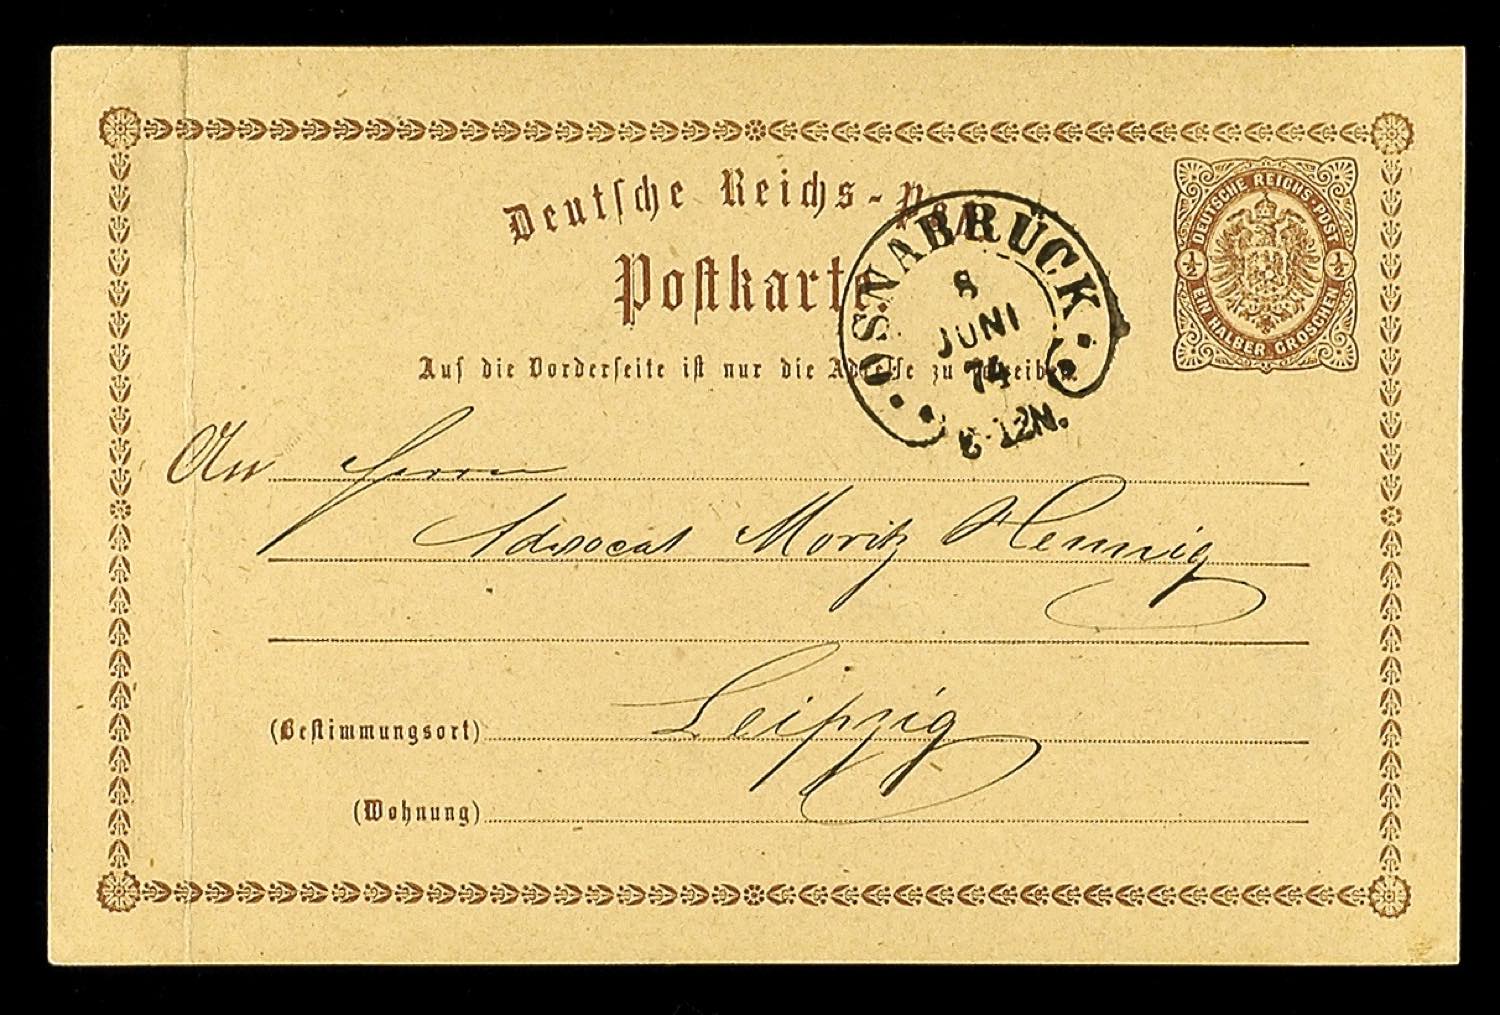 Deutsche Reichs-Post
Postkarte.
Auf die Vorderseite ist nur die Adresse zu schreiben.
DEUTSCHE REICHS-POST
½ ½
EIN HALBER GROSCHEN
OSNABRÜCK
8
JUNI
74
6-12N.
An Herrn
Advocat Moritz Hennig
(Bestimmungsort) Leipzig
(Wohnung)